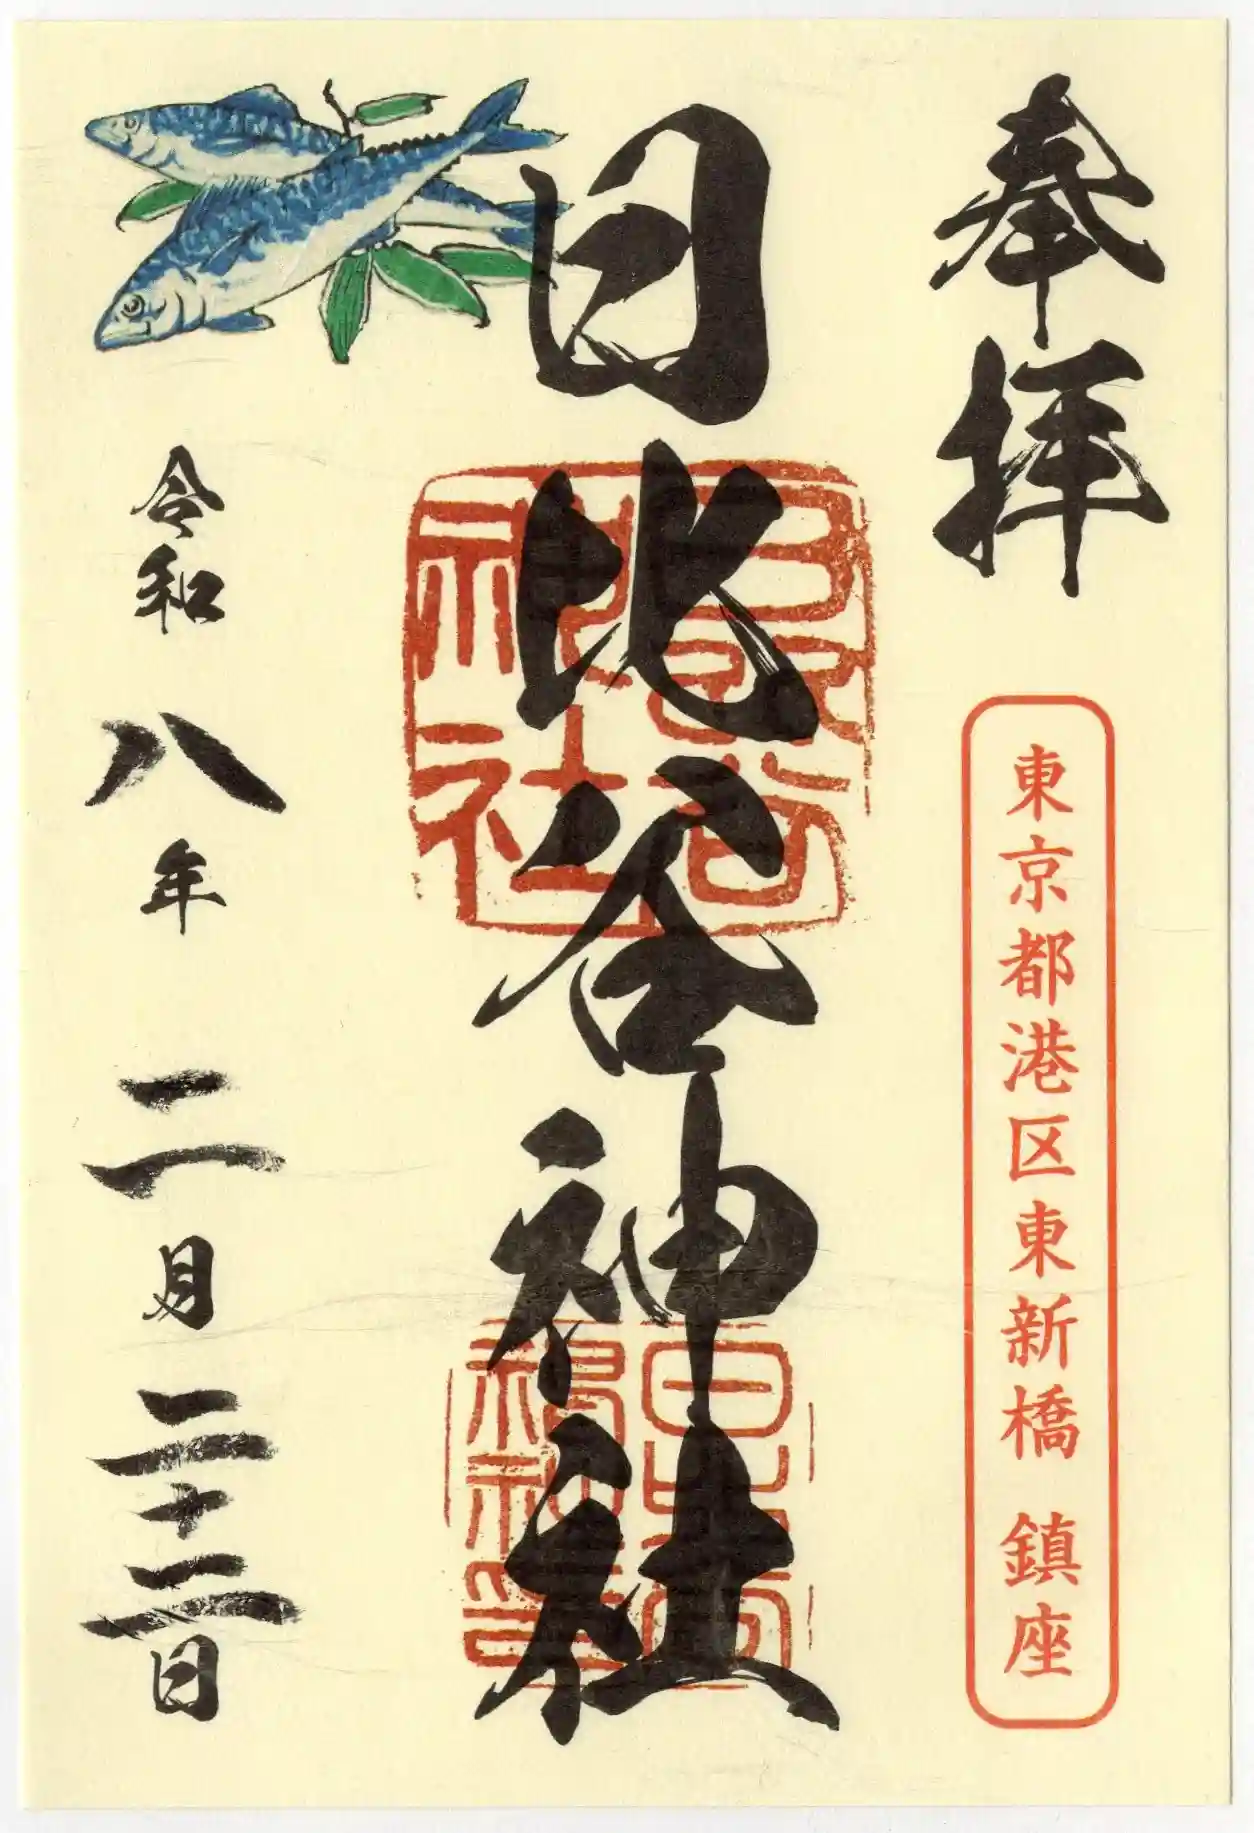 奉拝
東京都港区東新橋 鎮座
日比谷神社
日比谷
神社
令和八年二月二十二日